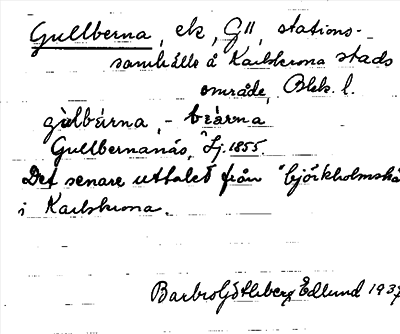 Gullberna, ek, Gll, stations-
samhälle å Karlskrona stads
område, Blek. l.
gùlbèırna, - bèärna
Gullbernanäs, Lj. 1855.
Det senare uttalet från "björkholmska
i Karlskrona.
Barbro Götlberg Edlund 1937